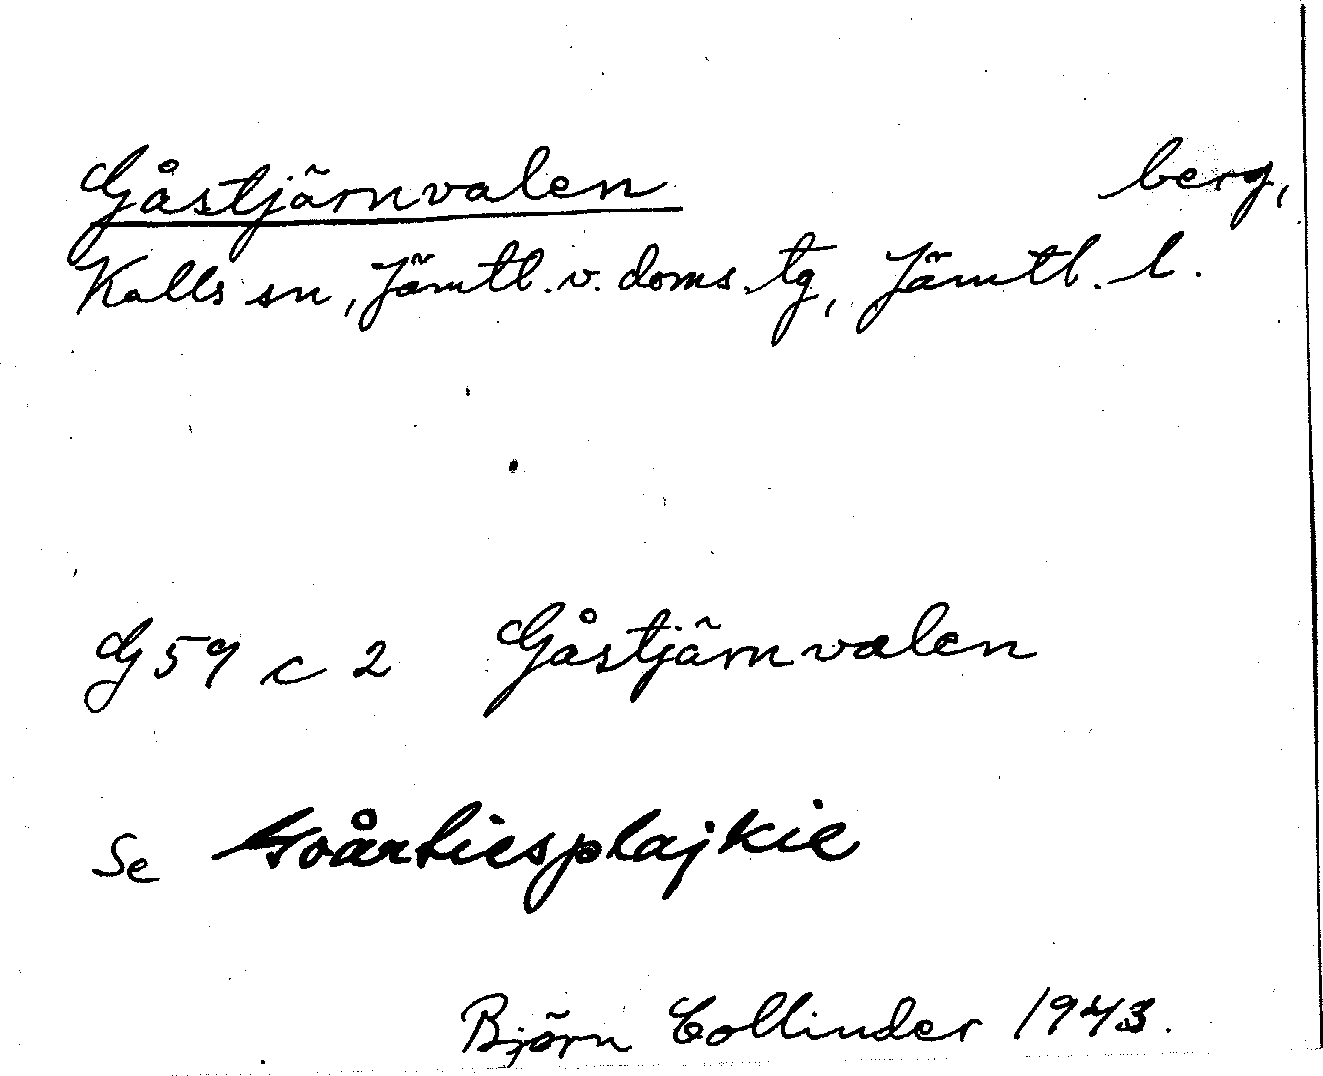 Gåstjärnvalen berg,
Kalls sn, Jämtl. v. doms. tg, Jämtl. l.
G 59 c 2 Gåstjärnvalen
Se Goårtiesplajkie
Björn Collinder 1943.